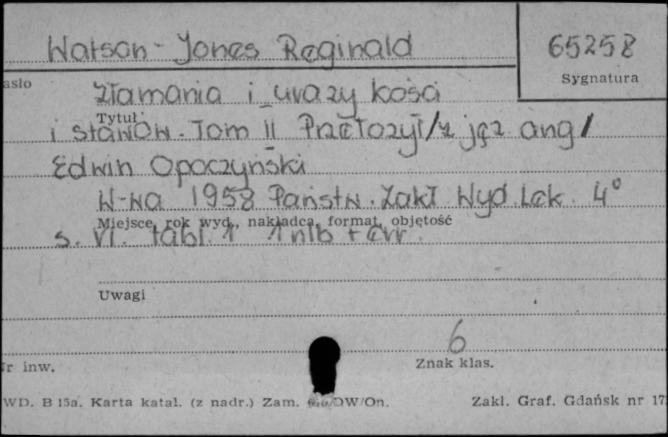 Watson-Jones Reginald
65258
Sygnatura
asło
Złamania i urazy kości
Tytuł
i stawów. Tom II Przełożył /z jęz ang/
Edwin Opoczyński
W-wa 1958 Państw. Zakł Wyd. Lek. 4°
Miejsce, rok wyd., nakładca, format, objętość
s. VI. tabl. 1 1 nlb + err.
Uwagi
6
Nr inw.
Znak klas.
WD. B 15a. Karta katal. (z nadr.) Zam. /DW/On.
Zakl. Graf. Gdańsk nr 17